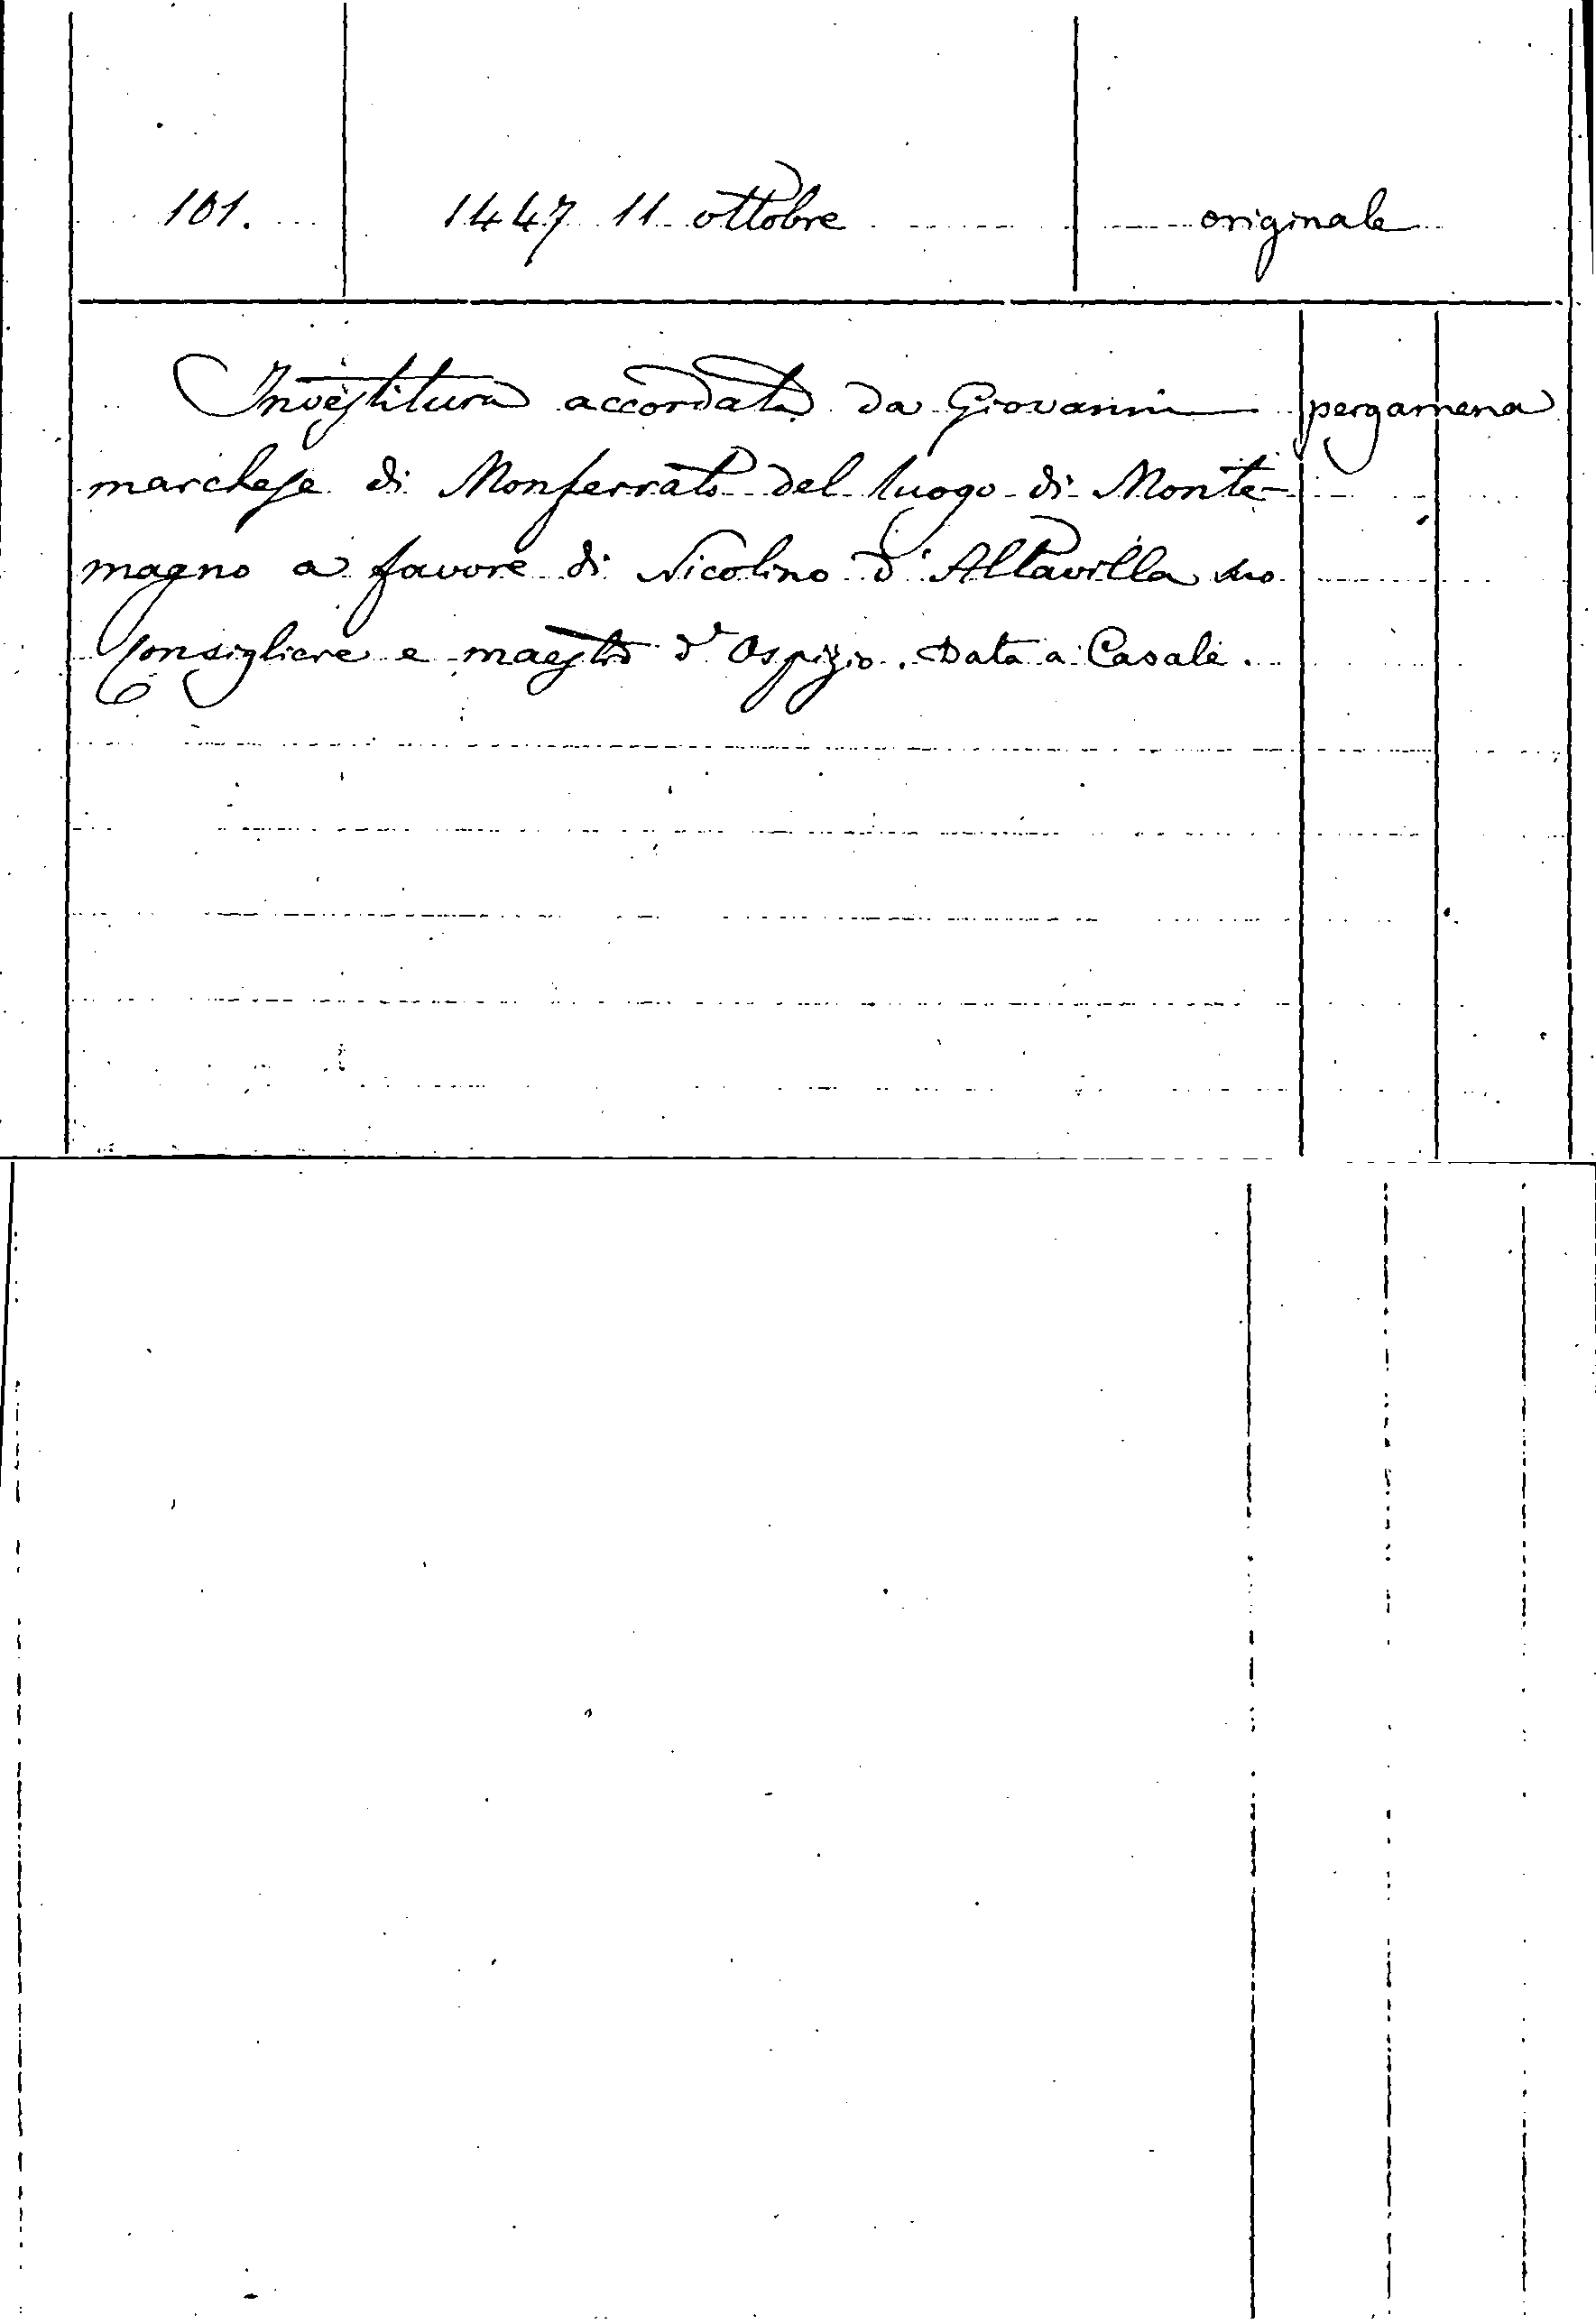 101. 1447 11 ottobre originale
Investitura accordata da Giovanni pergamena
marchese di Monferrato del luogo di Monte-
magno a favore di Nicolino d'Altavilla suo
Consigliere e maestro d'Ospizio. Data a Casale.